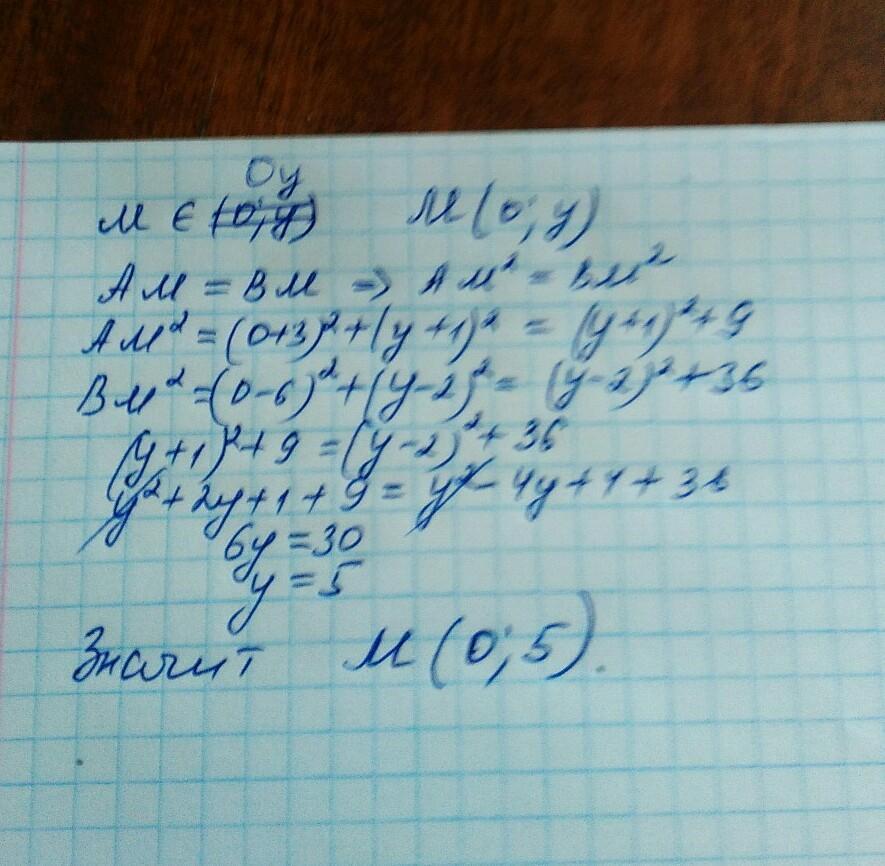 Oy
M ∈ (0; y) M(0; y)
AM = BM => AM² = BM²
AM² = (0+3)² + (y+1)² = (y+1)² + 9
BM² = (0-6)² + (y-2)² = (y-2)² + 36
(y+1)² + 9 = (y-2)² + 36
y² + 2y + 1 + 9 = y² - 4y + 4 + 36
6y = 30
y = 5
Значит M(0; 5).